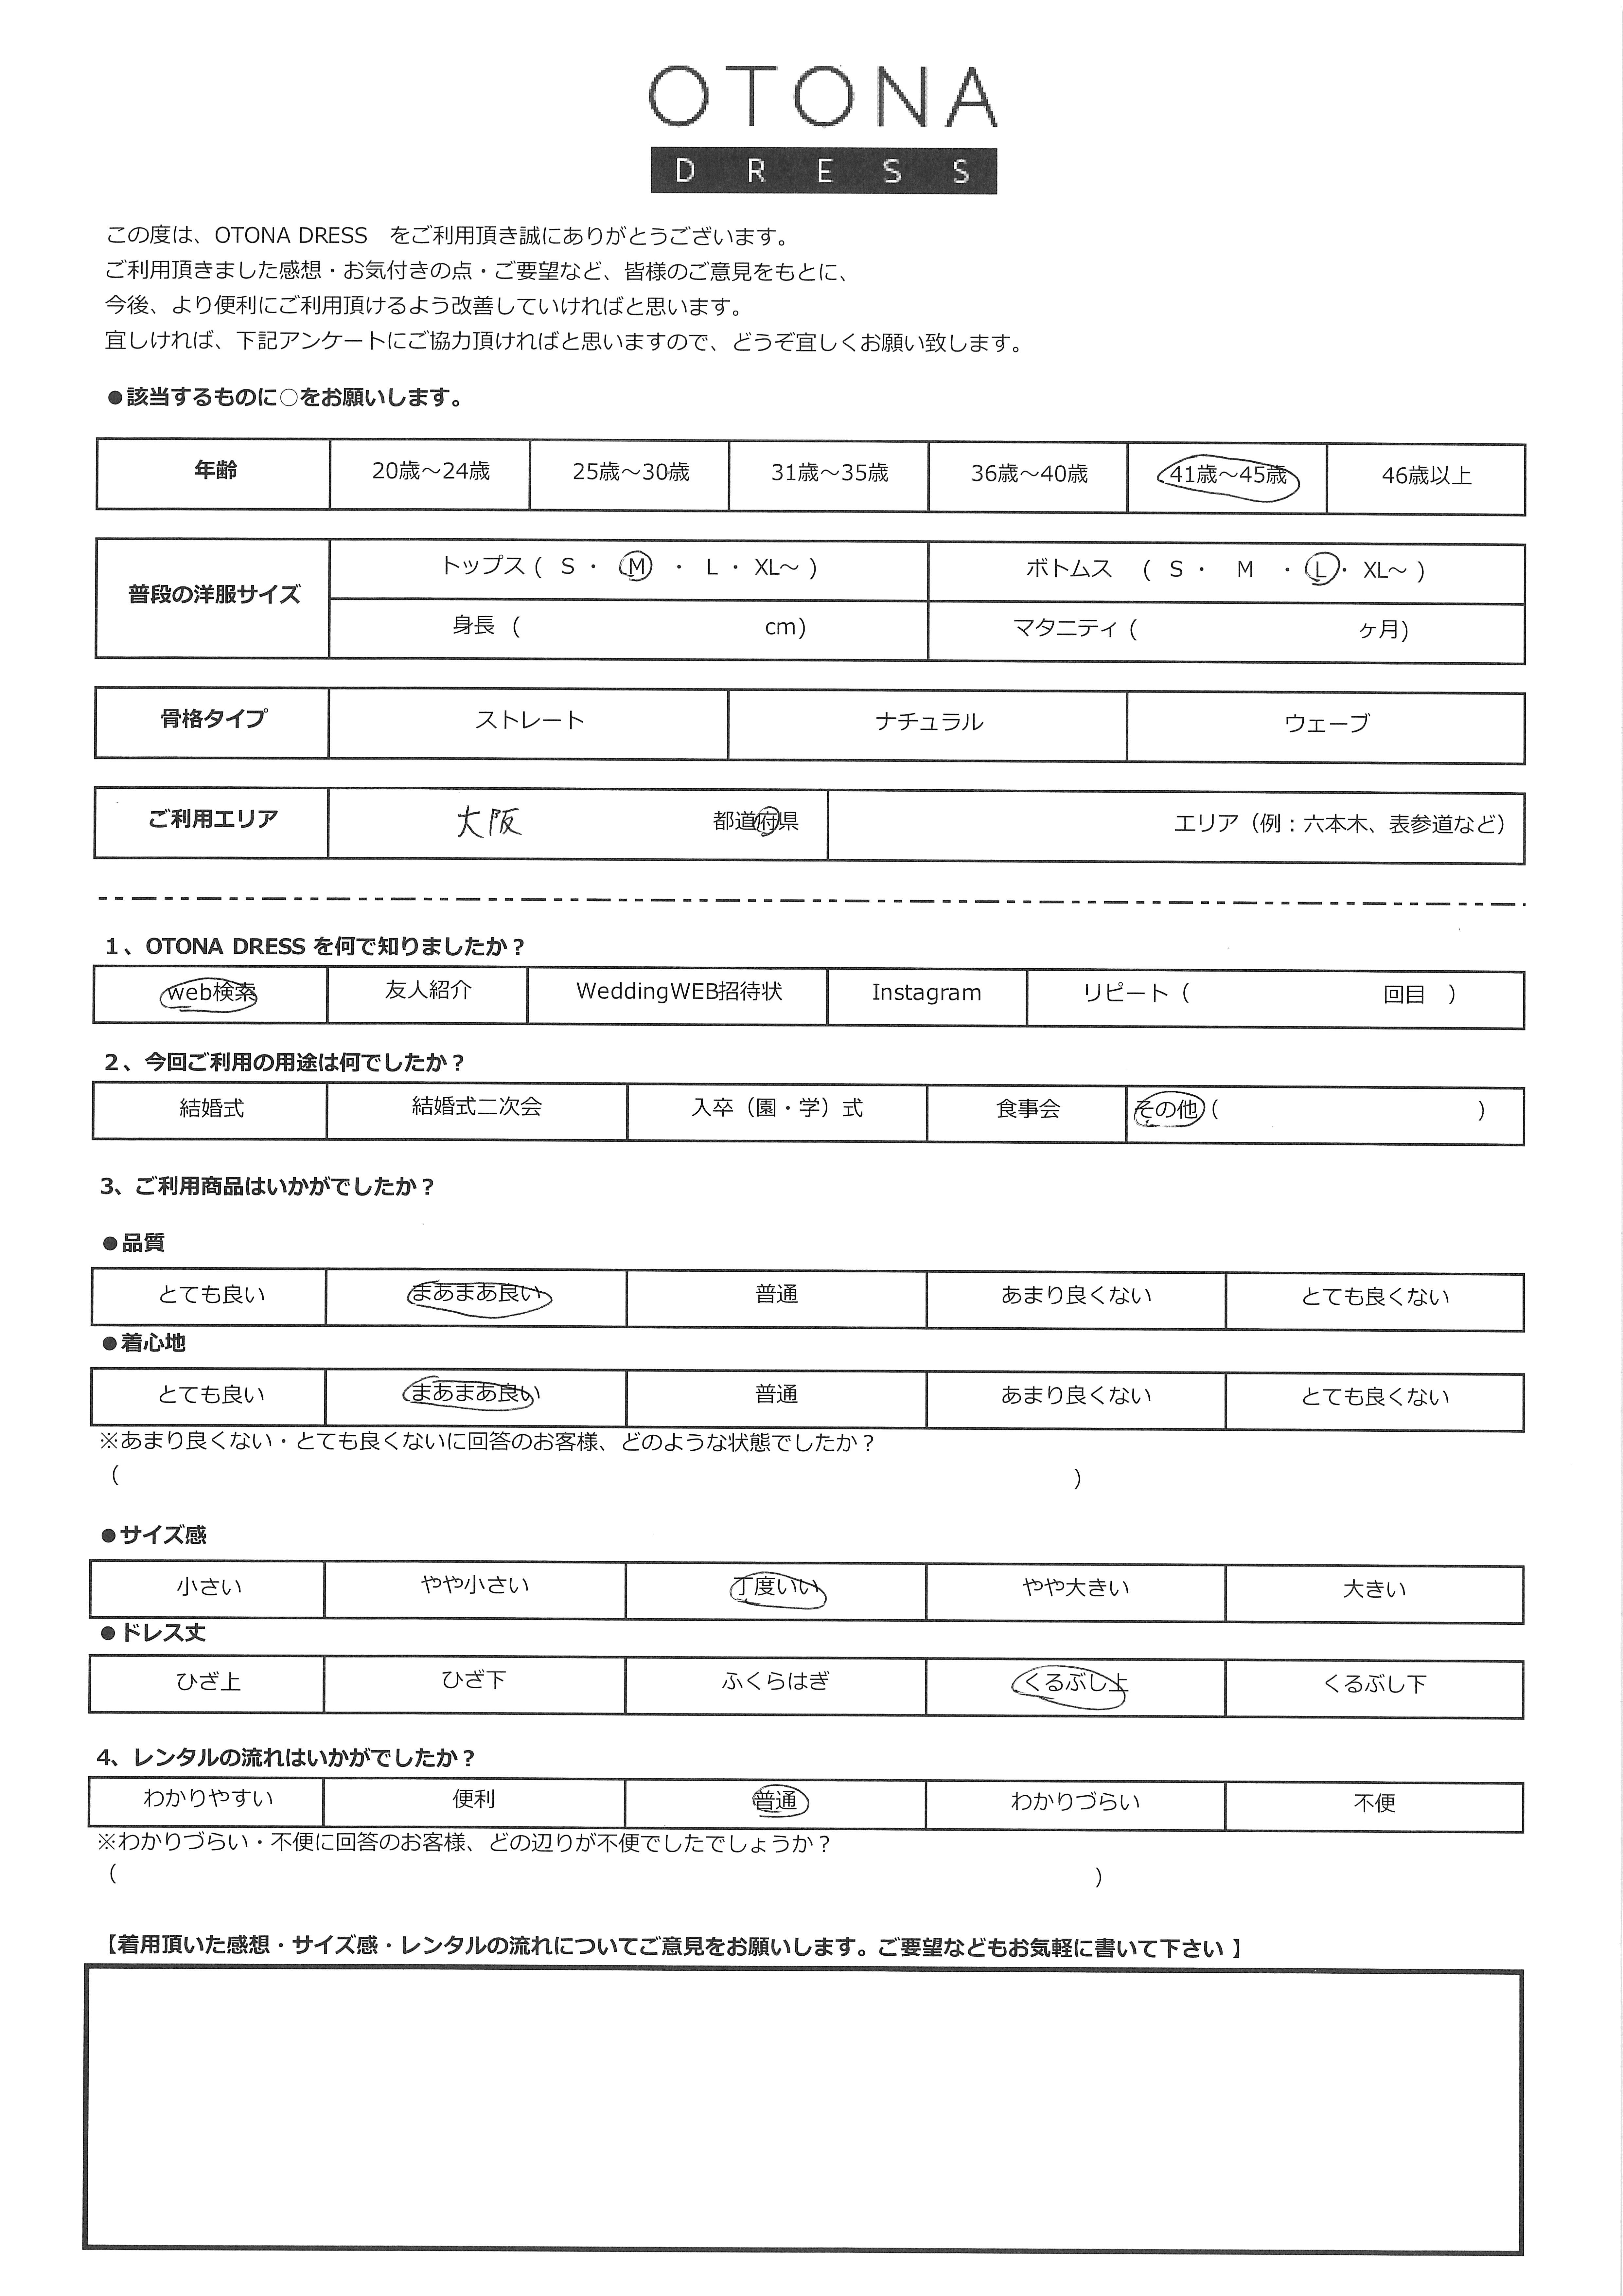 OTONA
DRESS
この度は、OTONA DRESS　をご利用頂き誠にありがとうございます。
ご利用頂きました感想・お気付きの点・ご要望など、皆様のご意見をもとに、
今後、より便利にご利用頂けるよう改善していければと思います。
宜しければ、下記アンケートにご協力頂ければと思いますので、どうぞ宜しくお願い致します。
●該当するものに○をお願いします。
年齢 20歳～24歳 25歳～30歳 31歳～35歳 36歳～40歳 41歳～45歳 46歳以上
普段の洋服サイズ
トップス ( S ・ M ・ L ・ XL～ ) ボトムス ( S ・ M ・ L ・ XL～ )
身長 ( cm) マタニティ ( ヶ月)
骨格タイプ ストレート ナチュラル ウェーブ
ご利用エリア 大阪 都道府県 エリア（例：六本木、表参道など）
1、OTONA DRESS を何で知りましたか？
web検索 友人紹介 WeddingWEB招待状 Instagram リピート（ 回目 ）
2、今回ご利用の用途は何でしたか？
結婚式 結婚式二次会 入卒（園・学）式 食事会 その他（ ）
3、ご利用商品はいかがでしたか？
●品質
とても良い まあまあ良い 普通 あまり良くない とても良くない
●着心地
とても良い まあまあ良い 普通 あまり良くない とても良くない
※あまり良くない・とても良くないに回答のお客様、どのような状態でしたか？
（ ）
●サイズ感
小さい やや小さい 丁度いい やや大きい 大きい
●ドレス丈
ひざ上 ひざ下 ふくらはぎ くるぶし上 くるぶし下
4、レンタルの流れはいかがでしたか？
わかりやすい 便利 普通 わかりづらい 不便
※わかりづらい・不便に回答のお客様、どの辺りが不便でしたでしょうか？
（ ）
【着用頂いた感想・サイズ感・レンタルの流れについてご意見をお願いします。ご要望などもお気軽に書いて下さい 】